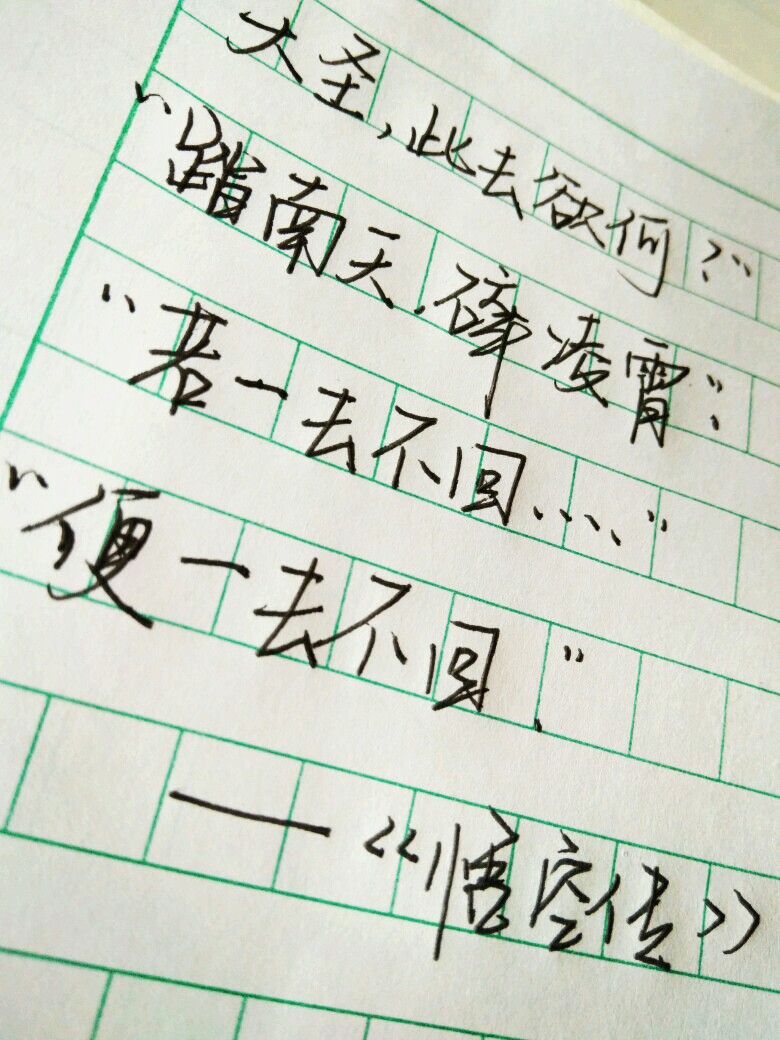 大圣,此去欲何?"
"踏南天,碎凌霄".
"若一去不回...."
"便一去不回."
——《悟空传》